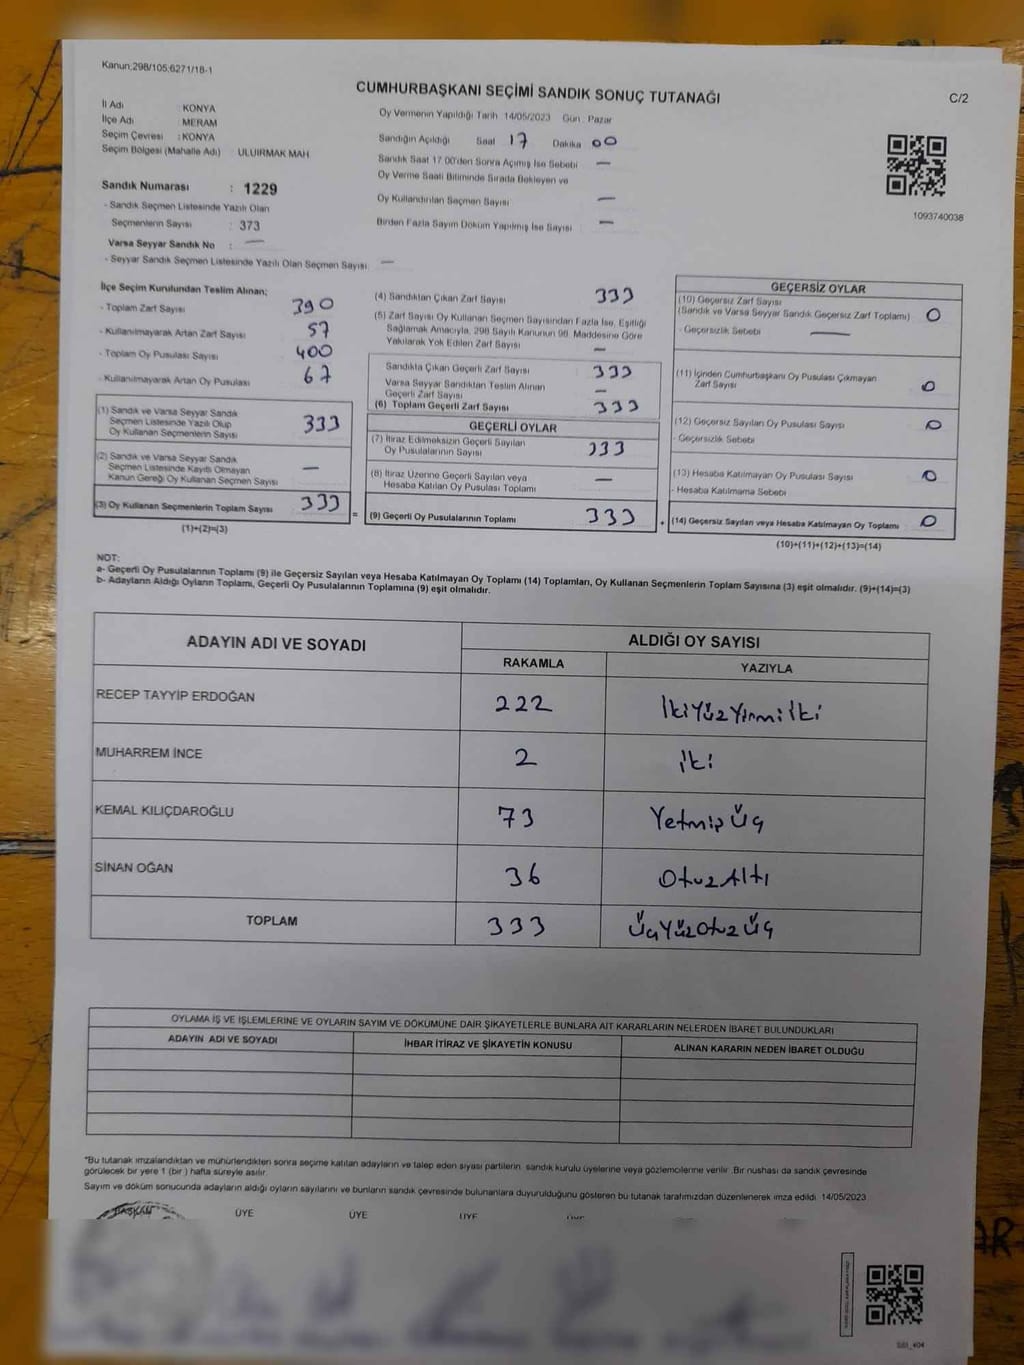 Kanun:298/105;6271/18-1
CUMHURBAŞKANI SEÇİMİ SANDIK SONUÇ TUTANAĞI
C/2
İl Adı : KONYA
İlçe Adı : MERAM
Seçim Çevresi : KONYA
Seçim Bölgesi (Mahalle Adı) : ULUIRMAK MAH
Sandık Numarası : 1229
- Sandık Seçmen Listesinde Yazılı Olan
Seçmenlerin Sayısı : 373
Varsa Seyyar Sandık No : —
- Seyyar Sandık Seçmen Listesinde Yazılı Olan Seçmen Sayısı: —
Oy Vermenin Yapıldığı Tarih 14/05/2023 Gün : Pazar
Sandığın Açıldığı Saat 17 Dakika 00
Sandık Saat 17.00'den Sonra Açımış İse Sebebi —
Oy Verme Saati Bitiminde Sırada Bekleyen ve
Oy Kullandırılan Seçmen Sayısı —
Birden Fazla Sayım Döküm Yapılmış İse Sayısı —
1093740038
İlçe Seçim Kurulundan Teslim Alınan;
- Toplam Zarf Sayısı 390
- Kullanılmayarak Artan Zarf Sayısı 57
- Toplam Oy Pusulası Sayısı 400
- Kullanılmayarak Artan Oy Pusulası 67
(1) Sandık ve Varsa Seyyar Sandık
Seçmen Listesinde Yazılı Olup
Oy Kullanan Seçmenlerin Sayısı 333
(2) Sandık ve Varsa Seyyar Sandık
Seçmen Listesinde Kayıtlı Olmayan
Kanun Gereği Oy Kullanan Seçmen Sayısı —
(3) Oy Kullanan Seçmenlerin Toplam Sayısı 333
(1)+(2)=(3)
=
(4) Sandıktan Çıkan Zarf Sayısı 333
(5) Zarf Sayısı Oy Kullanan Seçmen Sayısından Fazla İse, Eşitliği
Sağlamak Amacıyla, 298 Sayılı Kanunun 98. Maddesine Göre
Yakılarak Yok Edilen Zarf Sayısı —
Sandıkta Çıkan Geçerli Zarf Sayısı 333
Varsa Seyyar Sandıktan Teslim Alınan
Geçerli Zarf Sayısı —
(6) Toplam Geçerli Zarf Sayısı 333
GEÇERLİ OYLAR
(7) İtiraz Edilmeksizin Geçerli Sayılan
Oy Pusulalarının Sayısı 333
(8) İtiraz Üzerine Geçerli Sayılan veya
Hesaba Katılan Oy Pusulası Toplamı —
(9) Geçerli Oy Pusulalarının Toplamı 333
+
GEÇERSİZ OYLAR
(10) Geçersiz Zarf Sayısı
(Sandık ve Varsa Seyyar Sandık Geçersiz Zarf Toplamı) 0
- Geçersizlik Sebebi —
(11) İçinden Cumhurbaşkanı Oy Pusulası Çıkmayan
Zarf Sayısı 0
(12) Geçersiz Sayılan Oy Pusulası Sayısı 0
- Geçersizlik Sebebi
(13) Hesaba Katılmayan Oy Pusulası Sayısı 0
- Hesaba Katılmama Sebebi
(14) Geçersiz Sayılan veya Hesaba Katılmayan Oy Toplamı 0
(10)+(11)+(12)+(13)=(14)
NOT:
a- Geçerli Oy Pusulalarının Toplamı (9) ile Geçersiz Sayılan veya Hesaba Katılmayan Oy Toplamı (14) Toplamları, Oy Kullanan Seçmenlerin Toplam Sayısına (3) eşit olmalıdır. (9)+(14)=(3)
b- Adayların Aldığı Oyların Toplamı, Geçerli Oy Pusulalarının Toplamına (9) eşit olmalıdır.
ADAYIN ADI VE SOYADI
ALDIĞI OY SAYISI
RAKAMLA YAZIYLA
RECEP TAYYİP ERDOĞAN 222 İkiYüzYirmiiki
MUHARREM İNCE 2 iki
KEMAL KILIÇDAROĞLU 73 YetmişÜç
SİNAN OĞAN 36 OtuzAltı
TOPLAM 333 ÜçYüzOtuzÜç
OYLAMA İŞ VE İŞLEMLERİNE VE OYLARIN SAYIM VE DÖKÜMÜNE DAİR ŞİKAYETLERLE BUNLARA AİT KARARLARIN NELERDEN İBARET BULUNDUKLARI
ADAYIN ADI VE SOYADI İHBAR İTİRAZ VE ŞİKAYETİN KONUSU ALINAN KARARIN NEDEN İBARET OLDUĞU
*Bu tutanak imzalandıktan ve mühürlendikten sonra seçime katılan adayların ve talep eden siyasi partilerin sandık kurulu üyelerine veya gözlemcilerine verilir. Bir nushası da sandık çevresinde
görülecek bir yere 1 (bir ) hafta süreyle asılır.
Sayım ve döküm sonucunda adayların aldığı oyların sayılarını ve bunların sandık çevresinde bulunanlara duyurulduğunu gösteren bu tutanak tarafımızdan düzenlenerek imza edildi. 14/05/2023
BAŞKAN ÜYE ÜYE ÜYE